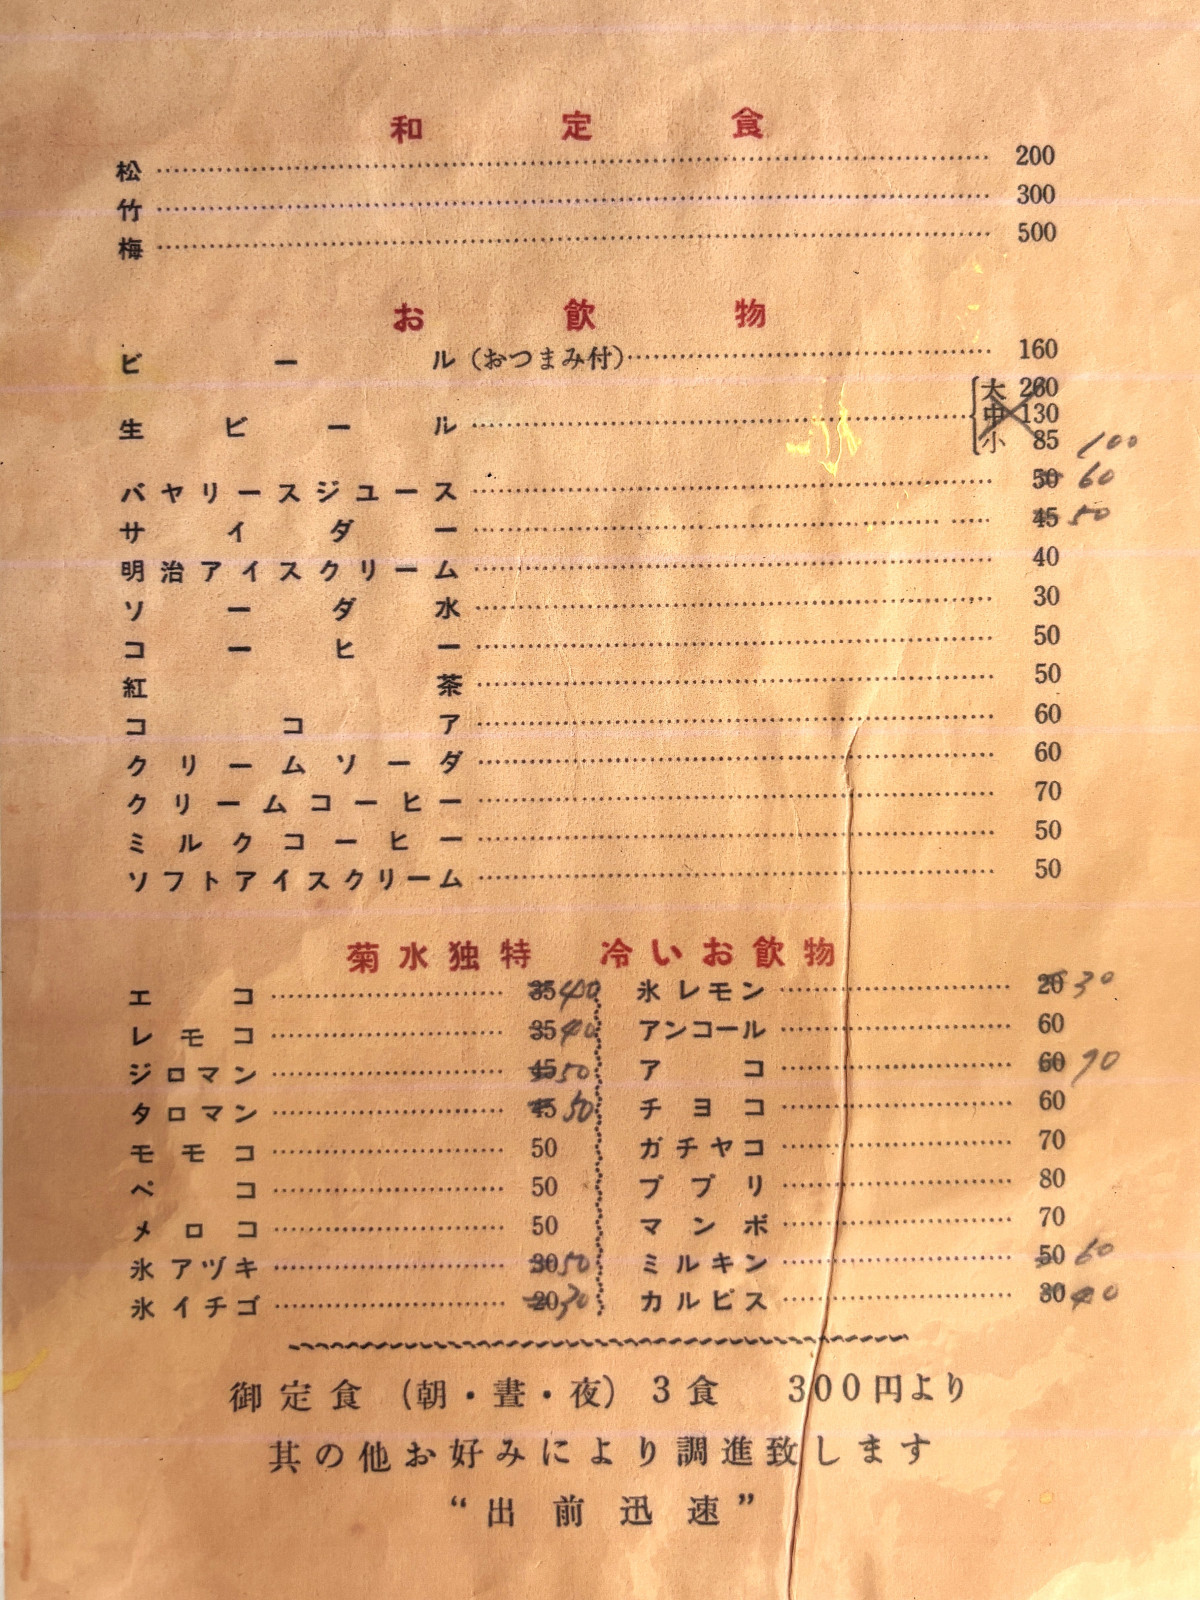 和定食
松 200
竹 300
梅 500
お飲物
ビール(おつまみ付) 160
生ビール 大 260
中 130
小 85 100
バヤリースジユース 50 60
サイダー 45 50
明治アイスクリーム 40
ソーダ水 30
コーヒー 50
紅茶 50
ココア 60
クリームソーダ 60
クリームコーヒー 70
ミルクコーヒー 50
ソフトアイスクリーム 50
菊水独特 冷いお飲物
エコ 35 40
レモコ 35 40
ジロマン 45 50
タロマン 45 50
モモコ 50
ペコ 50
メロコ 50
氷アヅキ 30 50
氷イチゴ 20 30
氷レモン 20 30
アンコール 60
アコ 60 90
チヨコ 60
ガチヤコ 70
ブブリ 80
マンボ 70
ミルキン 50 60
カルピス 30 40
御定食(朝・晝・夜)3食 300円より
其の他お好みにより調進致します
“出前迅速”